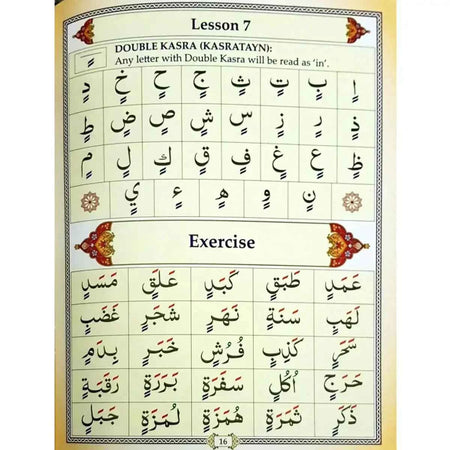 Lesson 7
DOUBLE KASRA (KASRATAYN):
Any letter with Double Kasra will be read as 'in'.
إٍ بٍ تٍ ثٍ جٍ حٍ خٍ دٍ
ذٍ رٍ زٍ سٍ شٍ صٍ ضٍ طٍ
ظٍ عٍ غٍ فٍ قٍ كٍ لٍ مٍ
نٍ وٍ هٍ ءٍ يٍ
Exercise
عَمَدٍ طَبَقٍ كَبَدٍ عَلَقٍ مَسَدٍ
لَهَبٍ سَنَةٍ نَهَرٍ شَجَرٍ غَضَبٍ
سَحَرٍ كَذِبٍ فُرُشٍ خَبَرٍ بِدَمٍ
حَرَجٍ اُكُلٍ سَفَرَةٍ بَرَرَةٍ رَقَبَةٍ
ذَكَرٍ ثَمَرَةٍ هُمَزَةٍ لُمَزَةٍ جَبَلٍ
16